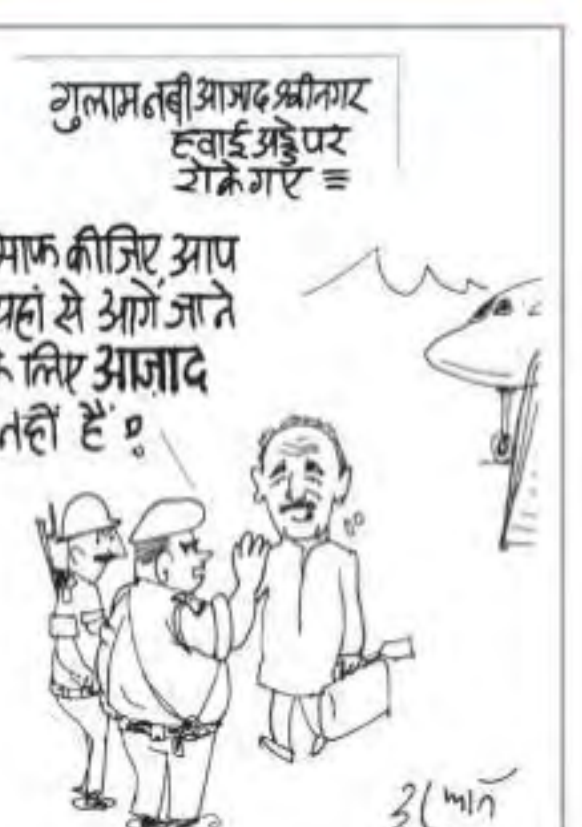 गुलाम नबी आजाद श्रीनगर
हवाई अड्डे पर
रोके गए
माफ कीजिए आप
यहां से आगें जाने
के लिए आज़ाद
नहीं हैं !